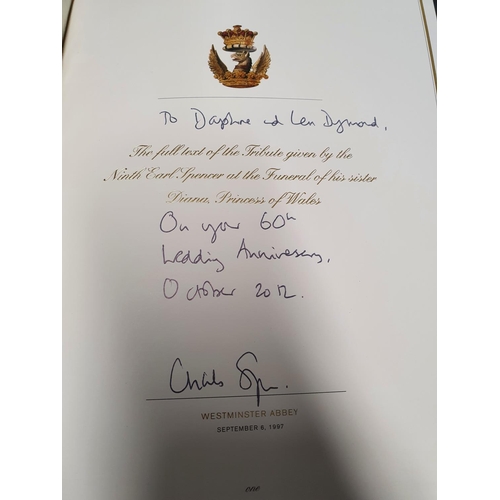 To Daphne and Len Dymond,
The full text of the Tribute given by the
Ninth Earl Spencer at the Funeral of his sister
Diana, Princess of Wales
On your 60th
Wedding Anniversary,
October 2012.
Charles Spencer.
WESTMINSTER ABBEY
SEPTEMBER 6, 1997
one